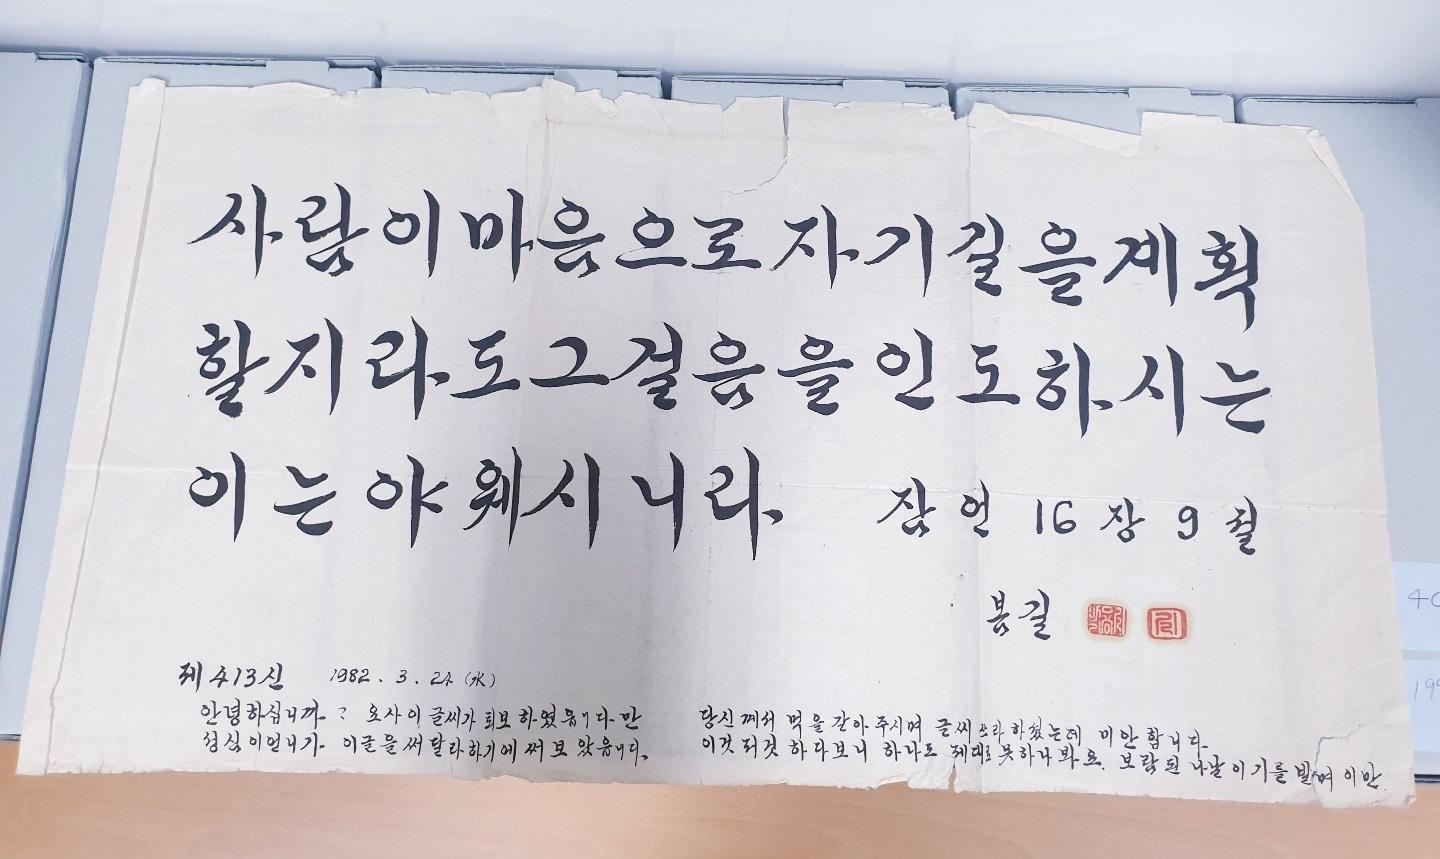 사람이 마음으로 자기 길을 계획
할지라도 그 걸음을 인도하시는
이는 야웨시니라 잠언 16장 9절
봄길
제413신 1982. 3. 24 (水)
안녕하십니까? 요사이 글씨가 퇴보하였읍니다만
성식이 언니가 이 글을 써 달라하기에 써 보았읍니다.
당신께서 먹을 갈아 주시며 글씨 쓰라 하셨는데 미안합니다.
이것 저것 하다보니 하나도 제대로 못하나 봐요. 보람된 나날이기를 빌며 이만
40
199